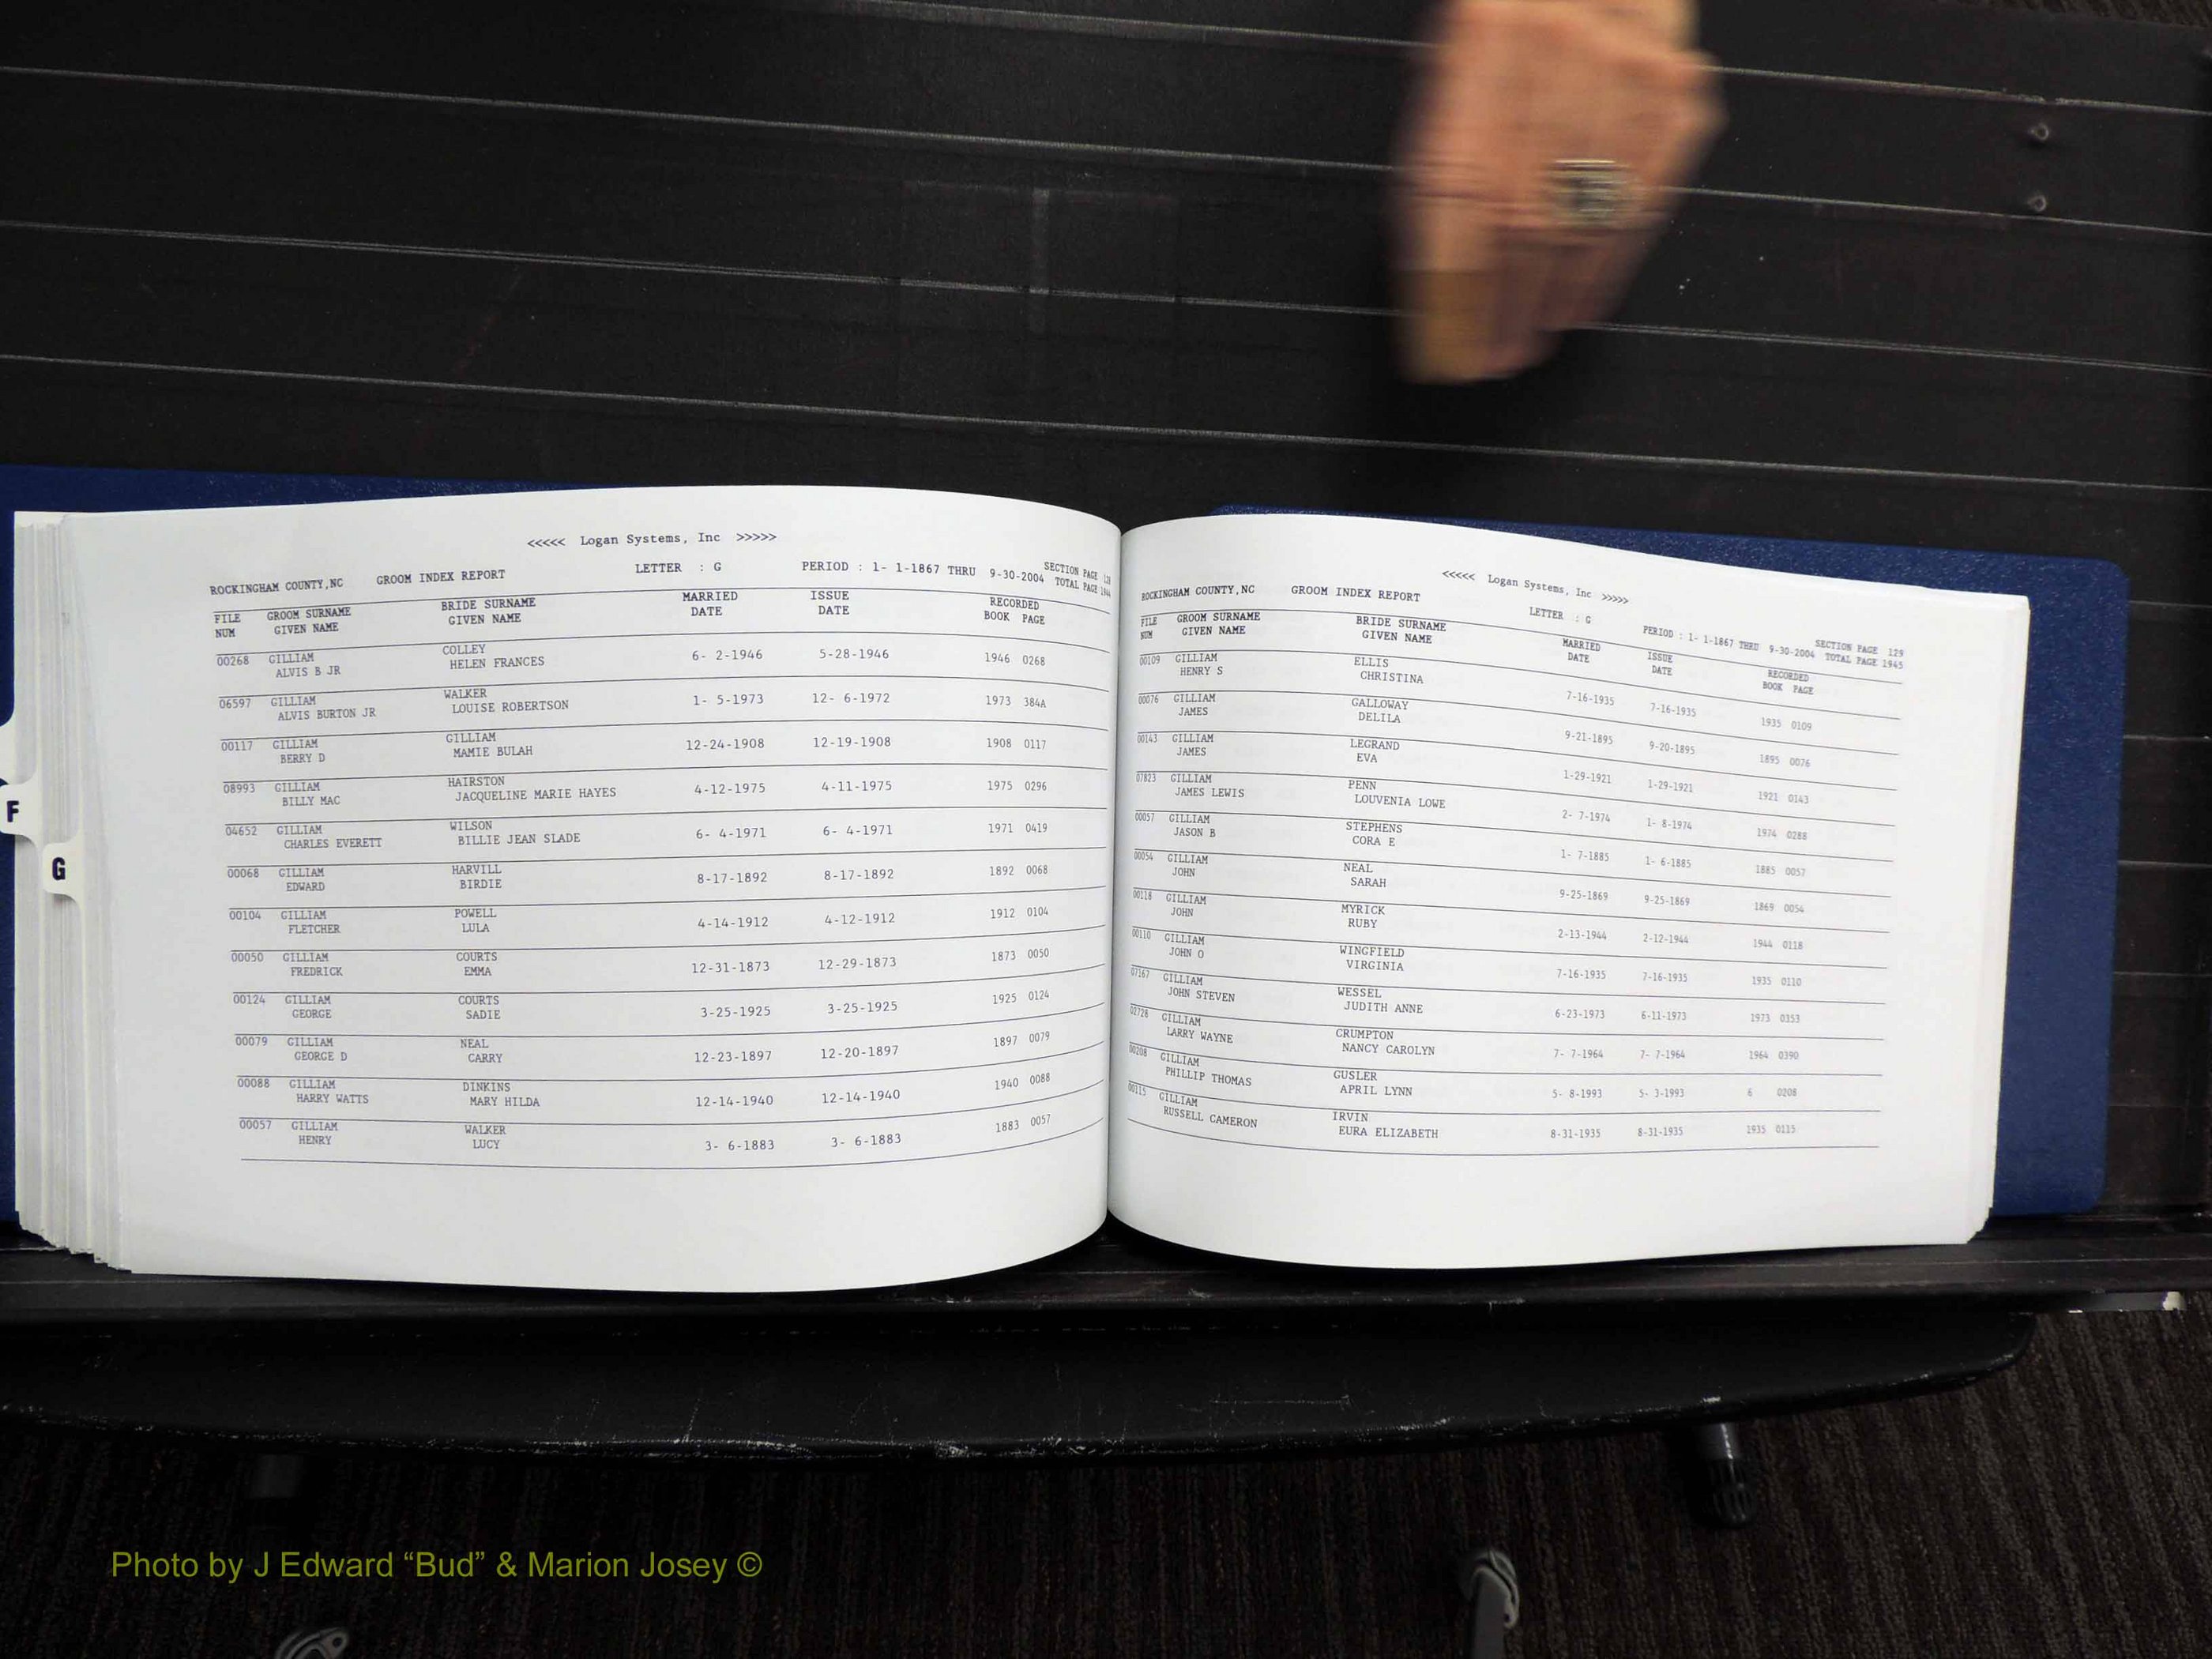 <<<<< Logan Systems, Inc >>>>>
ROCKINGHAM COUNTY,NC GROOM INDEX REPORT LETTER : G PERIOD : 1- 1-1867 THRU 9-30-2004 SECTION PAGE
TOTAL PAGE
FILE GROOM SURNAME BRIDE SURNAME MARRIED ISSUE RECORDED
NUM GIVEN NAME GIVEN NAME DATE DATE BOOK PAGE
00268 GILLIAM COLLEY 6- 2-1946 5-28-1946 1946 0268
ALVIS B JR HELEN FRANCES
06597 GILLIAM WALKER 1- 5-1973 12- 6-1972 1973 384A
ALVIS BURTON JR LOUISE ROBERTSON
00117 GILLIAM GILLIAM 12-24-1908 12-19-1908 1908 0117
BERRY D MAMIE BULAH
08993 GILLIAM HAIRSTON 4-12-1975 4-11-1975 1975 0296
BILLY MAC JACQUELINE MARIE HAYES
04652 GILLIAM WILSON 6- 4-1971 6- 4-1971 1971 0419
CHARLES EVERETT BILLIE JEAN SLADE
00068 GILLIAM HARVILL 8-17-1892 8-17-1892 1892 0068
EDWARD BIRDIE
00104 GILLIAM POWELL 4-14-1912 4-12-1912 1912 0104
FLETCHER LULA
00050 GILLIAM COURTS 12-31-1873 12-29-1873 1873 0050
FREDRICK EMMA
00124 GILLIAM COURTS 3-25-1925 3-25-1925 1925 0124
GEORGE SADIE
00079 GILLIAM NEAL 12-23-1897 12-20-1897 1897 0079
GEORGE D CARRY
00088 GILLIAM DINKINS 12-14-1940 12-14-1940 1940 0088
HARRY WATTS MARY HILDA
00057 GILLIAM WALKER 3- 6-1883 3- 6-1883 1883 0057
HENRY LUCY
F
G
<<<<< Logan Systems, Inc >>>>>
ROCKINGHAM COUNTY,NC GROOM INDEX REPORT LETTER : G PERIOD : 1- 1-1867 THRU 9-30-2004 SECTION PAGE 129
TOTAL PAGE 1945
FILE GROOM SURNAME BRIDE SURNAME MARRIED ISSUE RECORDED
NUM GIVEN NAME GIVEN NAME DATE DATE BOOK PAGE
00109 GILLIAM ELLIS 7-16-1935 7-16-1935 1935 0109
HENRY S CHRISTINA
00076 GILLIAM GALLOWAY 9-21-1895 9-20-1895 1895 0076
JAMES DELILA
00143 GILLIAM LEGRAND 1-29-1921 1-29-1921 1921 0143
JAMES EVA
07823 GILLIAM PENN 2- 7-1974 1- 8-1974 1974 0288
JAMES LEWIS LOUVENIA LOWE
00057 GILLIAM STEPHENS 1- 7-1885 1- 6-1885 1885 0057
JASON B CORA E
00054 GILLIAM NEAL 9-25-1869 9-25-1869 1869 0054
JOHN SARAH
00118 GILLIAM MYRICK 2-13-1944 2-12-1944 1944 0118
JOHN RUBY
00110 GILLIAM WINGFIELD 7-16-1935 7-16-1935 1935 0110
JOHN O VIRGINIA
07167 GILLIAM WESSEL 6-23-1973 6-11-1973 1973 0353
JOHN STEVEN JUDITH ANNE
02728 GILLIAM CRUMPTON 7- 7-1964 7- 7-1964 1964 0390
LARRY WAYNE NANCY CAROLYN
00208 GILLIAM GUSLER 5- 8-1993 5- 3-1993 6 0208
PHILLIP THOMAS APRIL LYNN
00115 GILLIAM IRVIN 8-31-1935 8-31-1935 1935 0115
RUSSELL CAMERON EURA ELIZABETH
Photo by J Edward “Bud” & Marion Josey ©